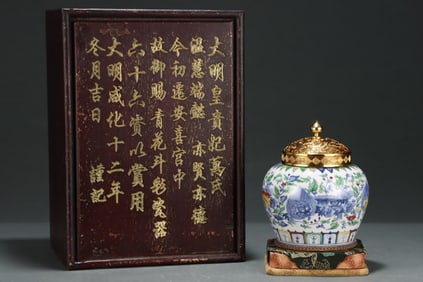 大明皇貴妃萬氏
温慧端懿亦賢亦德
今初遷安喜宮中
故御賜青花斗彩瓷器
六十六賞以賞用
大明成化十二年
冬月吉日 謹記